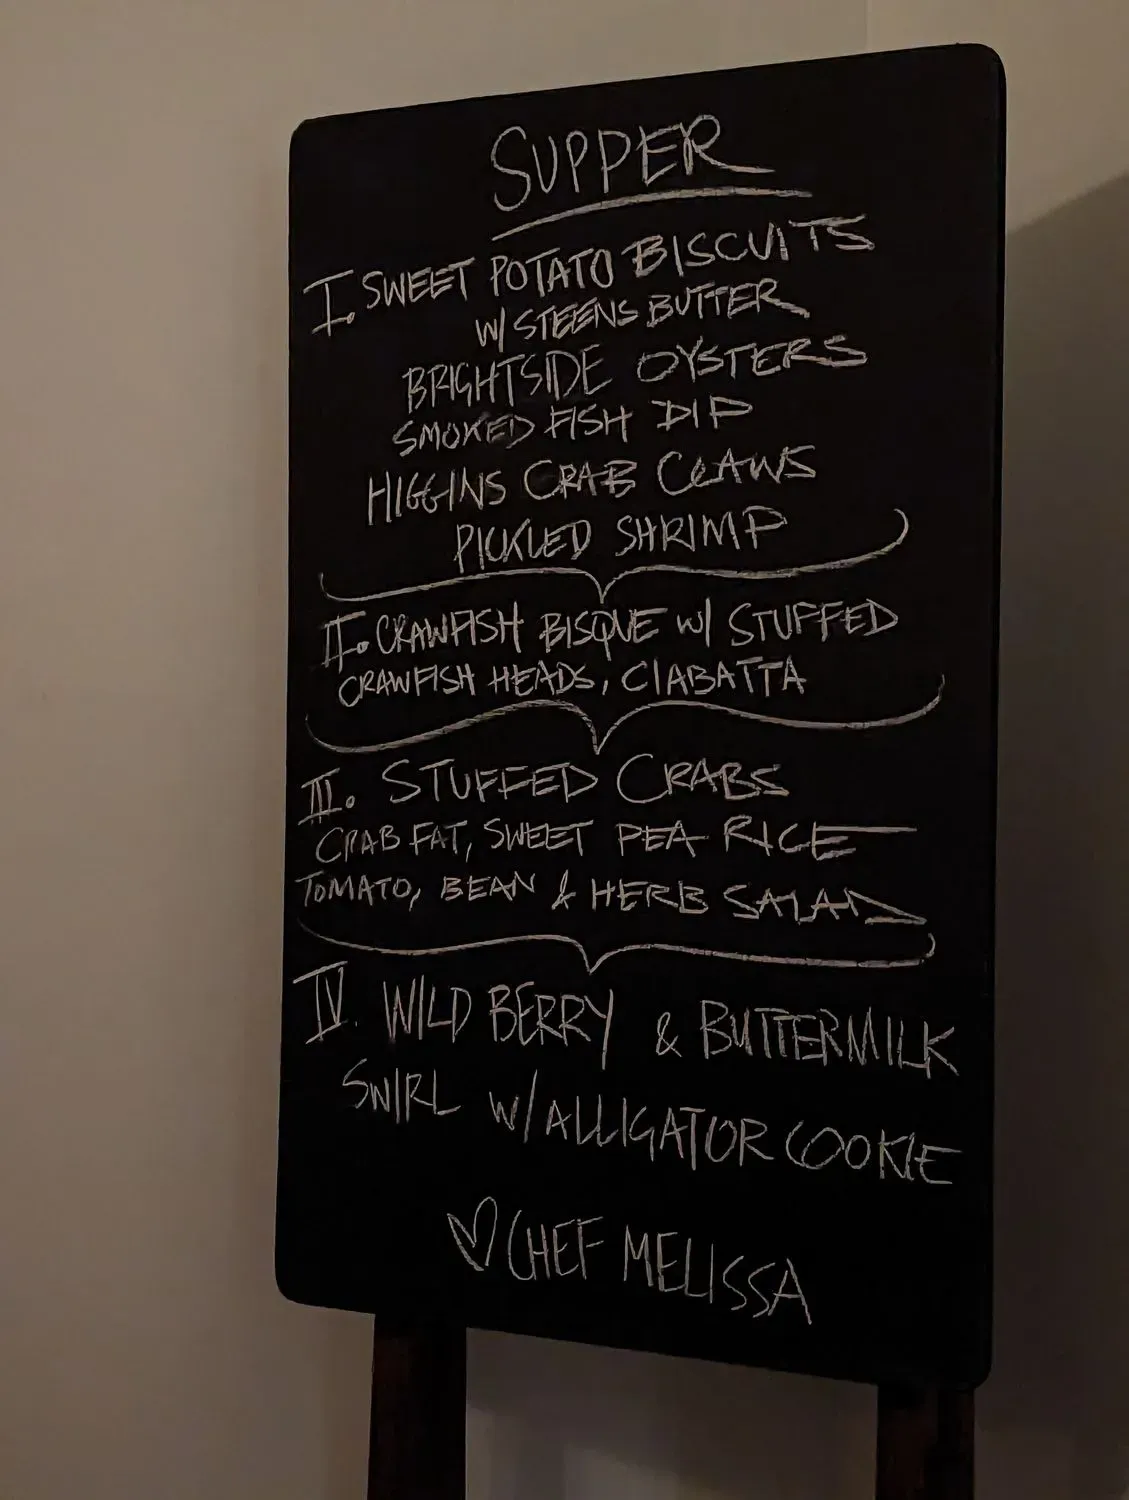 SUPPER
I. SWEET POTATO BISCUITS
W/ STEENS BUTTER
BRIGHTSIDE OYSTERS
SMOKED FISH DIP
HIGGINS CRAB CLAWS
PICKLED SHRIMP
II. CRAWFISH BISQUE W/ STUFFED
CRAWFISH HEADS, CIABATTA
III. STUFFED CRABS
CRAB FAT, SWEET PEA RICE
TOMATO, BEAN & HERB SALAD
IV. WILD BERRY & BUTTERMILK
SWIRL W/ ALLIGATOR COOKIE
♡ CHEF MELISSA